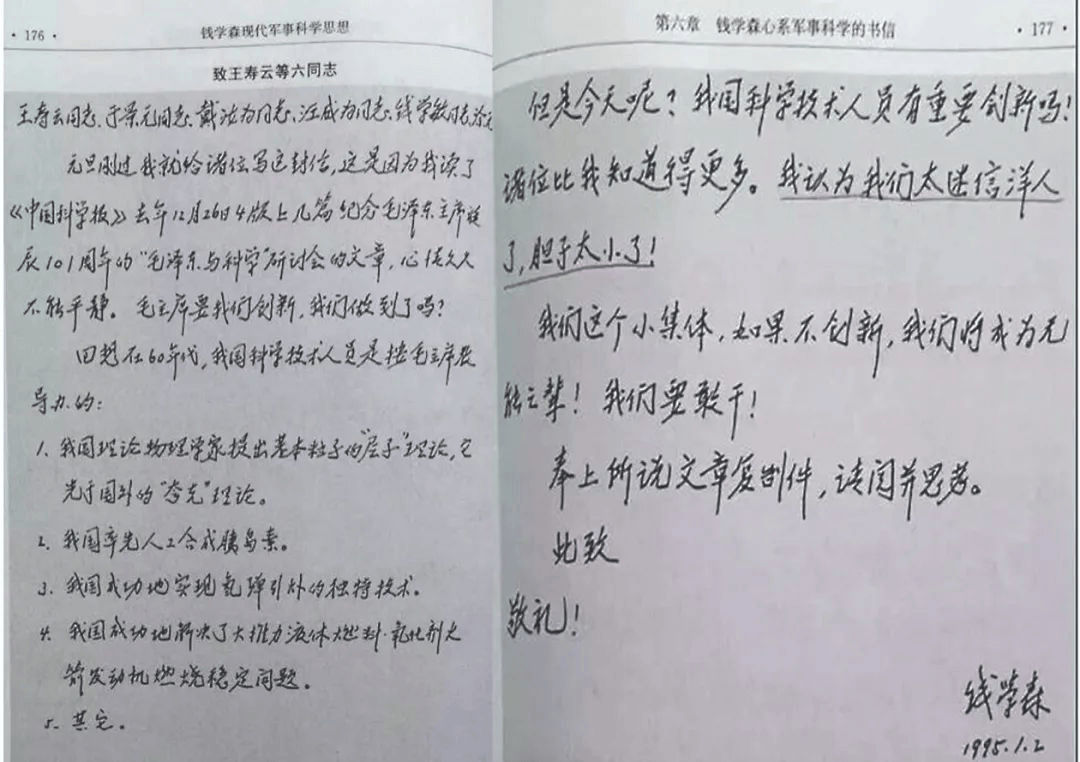 · 176 ·
钱学森现代军事科学思想
致王寿云等六同志
王寿云同志、于景元同志、戴汝为同志、汪成为同志、钱学敏同志
元旦刚过我就给诸位写这封信，这是因为我读了
《中国科学报》去年12月26日4版上几篇纪念毛泽东主席诞
辰101周年的“毛泽东与科学”研讨会的文章，心情久久
不能平静。毛主席要我们创新，我们做到了吗？
回想在60年代，我国科学技术人员是按毛主席教
导办的：
1. 我国理论物理学家提出基本粒子的“层子”理论，它
先于国外的“夸克”理论。
2. 我国率先人工合成胰岛素。
3. 我国成功地实现氢弹引爆的独特技术。
4. 我国成功地解决了大推力液体燃料·氧化剂火
箭发动机燃烧稳定问题。
5. 其它。
第六章 钱学森心系军事科学的书信
· 177 ·
但是今天呢？我国科学技术人员有重要创新吗！
诸位比我知道得更多。我认为我们太迷信洋人
了，胆子太小了！
我们这个小集体，如果不创新，我们将成为无
能之辈！我们要敢干！
奉上所说文章复制件，请阅并思考。
此致
敬礼！
钱学森
1995.1.2